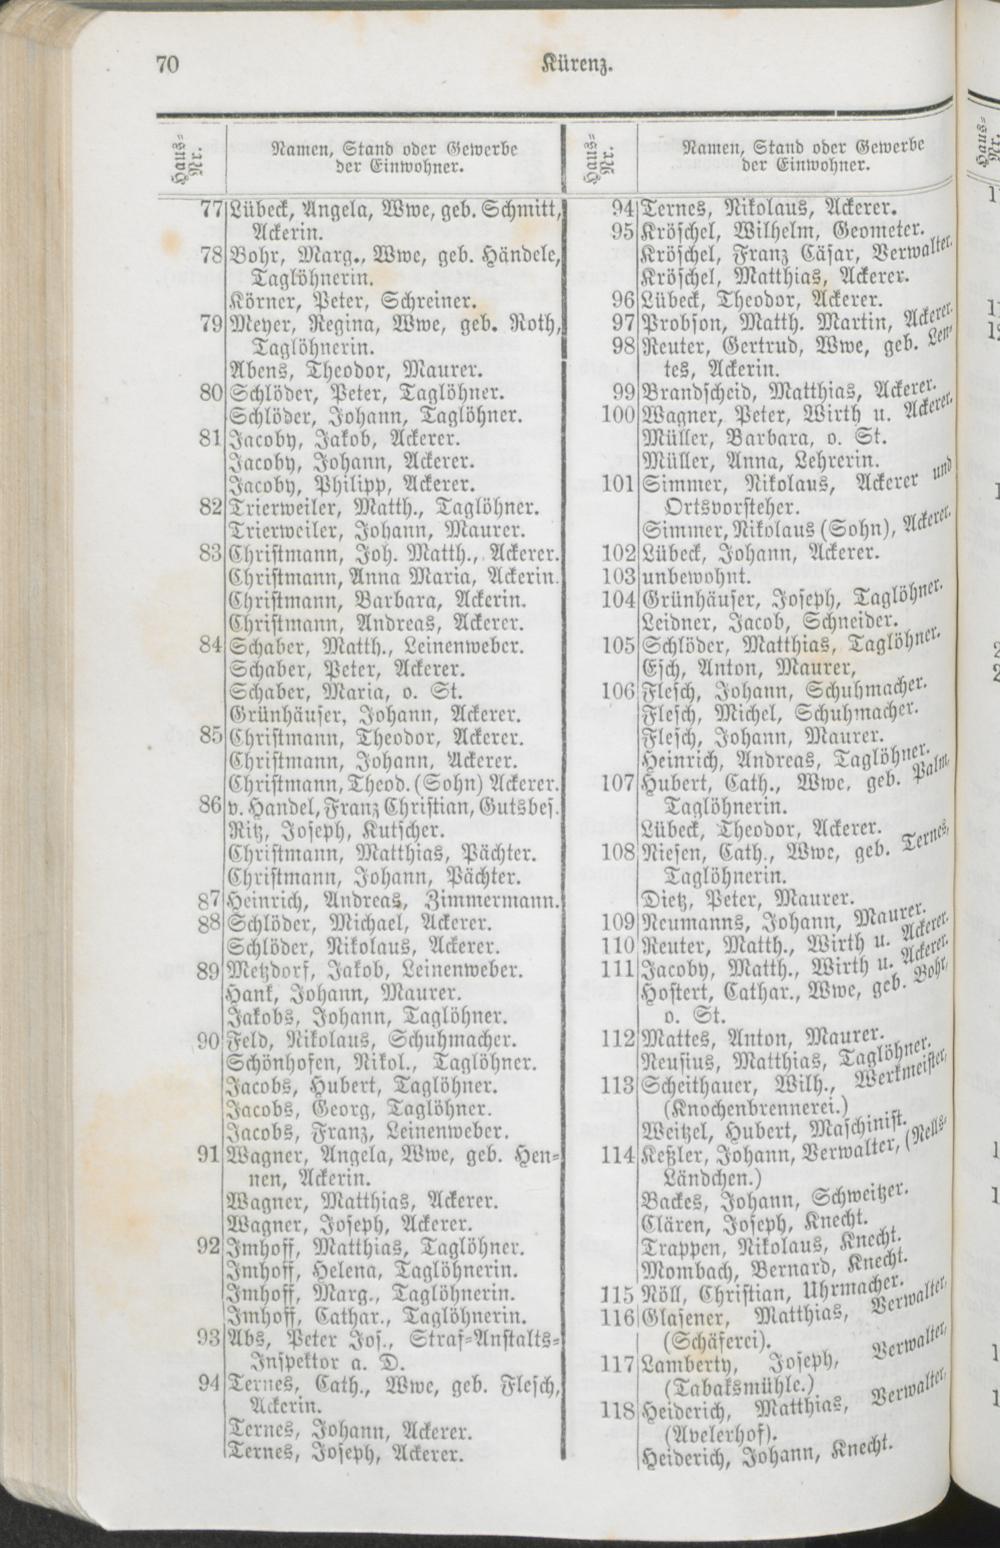 70
Kürenz.
Haus-
Nr.
Namen, Stand oder Gewerbe
der Einwohner.
77 Lübeck, Angela, Wwe, geb. Schmitt,
Ackerin.
78 Bohr, Marg., Wwe, geb. Händele,
Taglöhnerin.
Körner, Peter, Schreiner.
79 Meyer, Regina, Wwe, geb. Roth,
Taglöhnerin.
Abens, Theodor, Maurer.
80 Schlöder, Peter, Taglöhner.
Schlöder, Johann, Taglöhner.
81 Jacoby, Jakob, Ackerer.
Jacoby, Johann, Ackerer.
Jacoby, Philipp, Ackerer.
82 Trierweiler, Matth., Taglöhner.
Trierweiler, Johann, Maurer.
83 Christmann, Joh. Matth., Ackerer.
Christmann, Anna Maria, Ackerin.
Christmann, Barbara, Ackerin.
Christmann, Andreas, Ackerer.
84 Schaber, Matth., Leinenweber.
Schaber, Peter, Ackerer.
Schaber, Maria, o. St.
Grünhäuser, Johann, Ackerer.
85 Christmann, Theodor, Ackerer.
Christmann, Johann, Ackerer.
Christmann, Theod. (Sohn) Ackerer.
86 v. Handel, Franz Christian, Gutsbes.
Ritz, Joseph, Kutscher.
Christmann, Matthias, Pächter.
Christmann, Johann, Pächter.
87 Heinrich, Andreas, Zimmermann.
88 Schlöder, Michael, Ackerer.
Schlöder, Nikolaus, Ackerer.
89 Metzdorf, Jakob, Leinenweber.
Hank, Johann, Maurer.
Jakobs, Johann, Taglöhner.
90 Feld, Nikolaus, Schuhmacher.
Schönhofen, Nikol., Taglöhner.
Jacobs, Hubert, Taglöhner.
Jacobs, Georg, Taglöhner.
Jacobs, Franz, Leinenweber.
91 Wagner, Angela, Wwe, geb. Hen-
nen, Ackerin.
Wagner, Matthias, Ackerer.
Wagner, Joseph, Ackerer.
92 Imhoff, Matthias, Taglöhner.
Imhoff, Helena, Taglöhnerin.
Imhoff, Marg., Taglöhnerin.
Imhoff, Cathar., Taglöhnerin.
93 Abs, Peter Jos., Straf-Anstalts-
Inspektor a. D.
94 Ternes, Cath., Wwe, geb. Flesch,
Ackerin.
Ternes, Johann, Ackerer.
Ternes, Joseph, Ackerer.
Haus-
Nr.
Namen, Stand oder Gewerbe
der Einwohner.
94 Ternes, Nikolaus, Ackerer.
95 Kröschel, Wilhelm, Geometer.
Kröschel, Franz Cäsar, Verwalter.
Kröschel, Matthias, Ackerer.
96 Lübeck, Theodor, Ackerer.
97 Probson, Matth. Martin, Ackerer.
98 Reuter, Gertrud, Wwe, geb. Len-
tes, Ackerin.
99 Brandscheid, Matthias, Ackerer.
100 Wagner, Peter, Wirth u. Ackerer.
Müller, Barbara, o. St.
Müller, Anna, Lehrerin.
101 Simmer, Nikolaus, Ackerer und
Ortsvorsteher.
Simmer, Nikolaus (Sohn), Ackerer.
102 Lübeck, Johann, Ackerer.
103 unbewohnt.
104 Grünhäuser, Joseph, Taglöhner.
Leidner, Jacob, Schneider.
105 Schlöder, Matthias, Taglöhner.
Esch, Anton, Maurer,
106 Flesch, Johann, Schuhmacher.
Flesch, Michel, Schuhmacher.
Flesch, Johann, Maurer.
Heinrich, Andreas, Taglöhner.
107 Hubert, Cath., Wwe, geb. Palm,
Taglöhnerin.
Lübeck, Theodor, Ackerer.
108 Niesen, Cath., Wwe, geb. Ternes,
Taglöhnerin.
Dietz, Peter, Maurer.
109 Neumanns, Johann, Maurer.
110 Reuter, Matth., Wirth u. Ackerer.
111 Jacoby, Matth., Wirth u. Ackerer.
Hostert, Cathar., Wwe, geb. Bohr,
o. St.
112 Mattes, Anton, Maurer.
Neusius, Matthias, Taglöhner.
113 Scheithauer, Wilh., Werkmeister,
(Knochenbrennerei.)
Weitzel, Hubert, Maschinist.
114 Keßler, Johann, Verwalter, (Nells-
Ländchen.)
Backes, Johann, Schweitzer.
Clären, Joseph, Knecht.
Trappen, Nikolaus, Knecht.
Mombach, Bernard, Knecht.
115 Nöll, Christian, Uhrmacher.
116 Glasener, Matthias, Verwalter,
(Schäferei).
117 Lamberty, Joseph, Verwalter,
(Tabaksmühle.)
118 Heiderich, Matthias, Verwalter,
(Avelerhof).
Heiderich, Johann, Knecht.